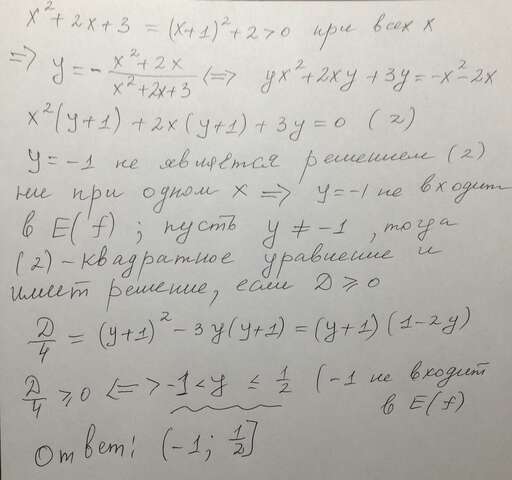 x² + 2x + 3 = (x+1)² + 2 > 0 при всех x
=> y = - (x² + 2x)/(x² + 2x + 3) <=> yx² + 2xy + 3y = -x² - 2x
x²(y+1) + 2x(y+1) + 3y = 0 (2)
y = -1 не является решением (2)
ни при одном x => y = -1 не входит
в E(f) ; пусть y ≠ -1 , тогда
(2) - квадратное уравнение и
имеет решение, если D ⩾ 0
D/4 = (y+1)² - 3y(y+1) = (y+1)(1-2y)
D/4 ⩾ 0 <=> -1 < y ≤ 1/2 (-1 не входит
в E(f)
Ответ: (-1; 1/2]